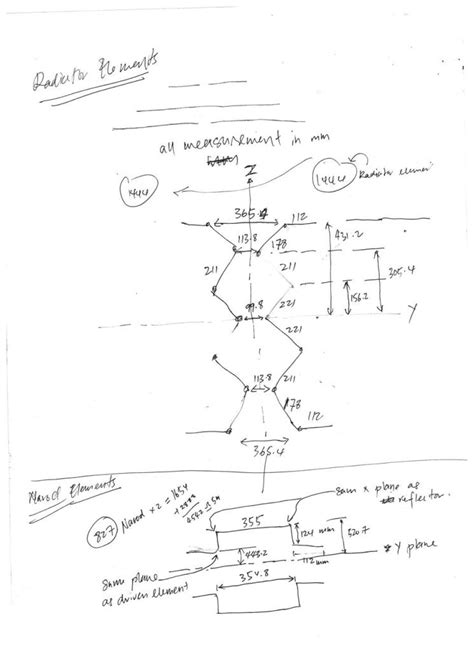 Radiator Elements
all measurement in mm
Z
1444
1444
Radiator element
365.4
112
113.8
178
431.2
211
211
305.4
156.2
99.8
221
Y
221
113.8
211
178
112
365.4
Narod Elements
827
Narod x 2 = 1654
same x plane as
reflector.
355
124 mm
520.7
Y plane
443.2
112 mm
same plane
as driven element
354.8